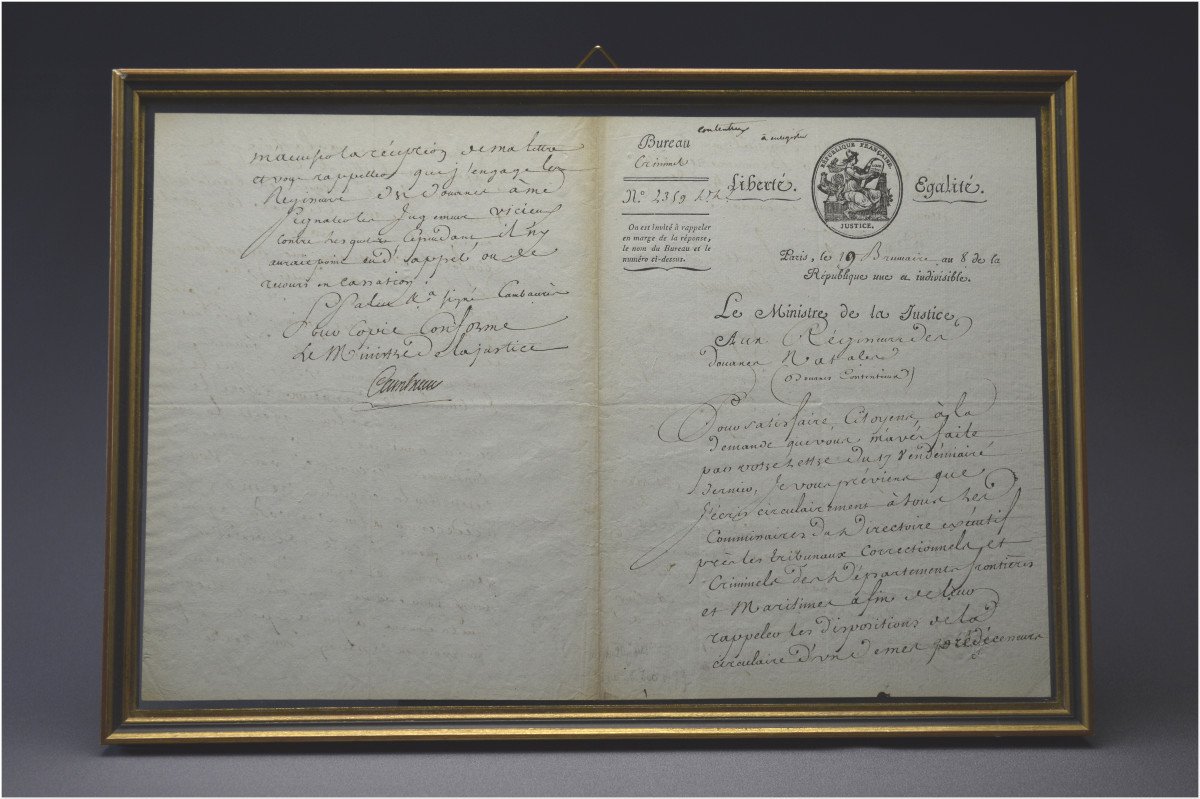 m'accuser la réception de ma lettre
et vous rappeller que j'engage les
Régisseurs des Douanes à me
signaler les Jugemens vicieux
contre lesquels cependant il n'y
auroit point eu d'appel ou de
recours en cassation.
Salut & a signé Cambacérès
Pour Copie Conforme
Le Ministre de la justice
Cambacérès
contentieux
à enregistrer
Bureau
Criminel
N.º 2359
On est invité à rappeler
en marge de la réponse,
le nom du Bureau et le
numéro ci-dessus.
Liberté.
RÉPUBLIQUE FRANÇAISE.
JUSTICE.
Egalité.
Paris, le 19 Brumaire an 8 de la
République une et indivisible.
Le Ministre de la Justice
Aux Régisseurs des
douanes Nationales
(Douanes Contentieux)
Pour satisfaire, Citoyens, à la
demande que vous m'avés faite
par votre Lettre du 17 Vendémiaire
dernier, Je vous préviens que
j'écris circulairement à tous les
Commissaires du Directoire exécutif
près les tribunaux Correctionnels et
Criminels des Départements frontières
et Maritimes afin de leur
rappeler les dispositions de la
circulaire d'un de mes prédécesseurs